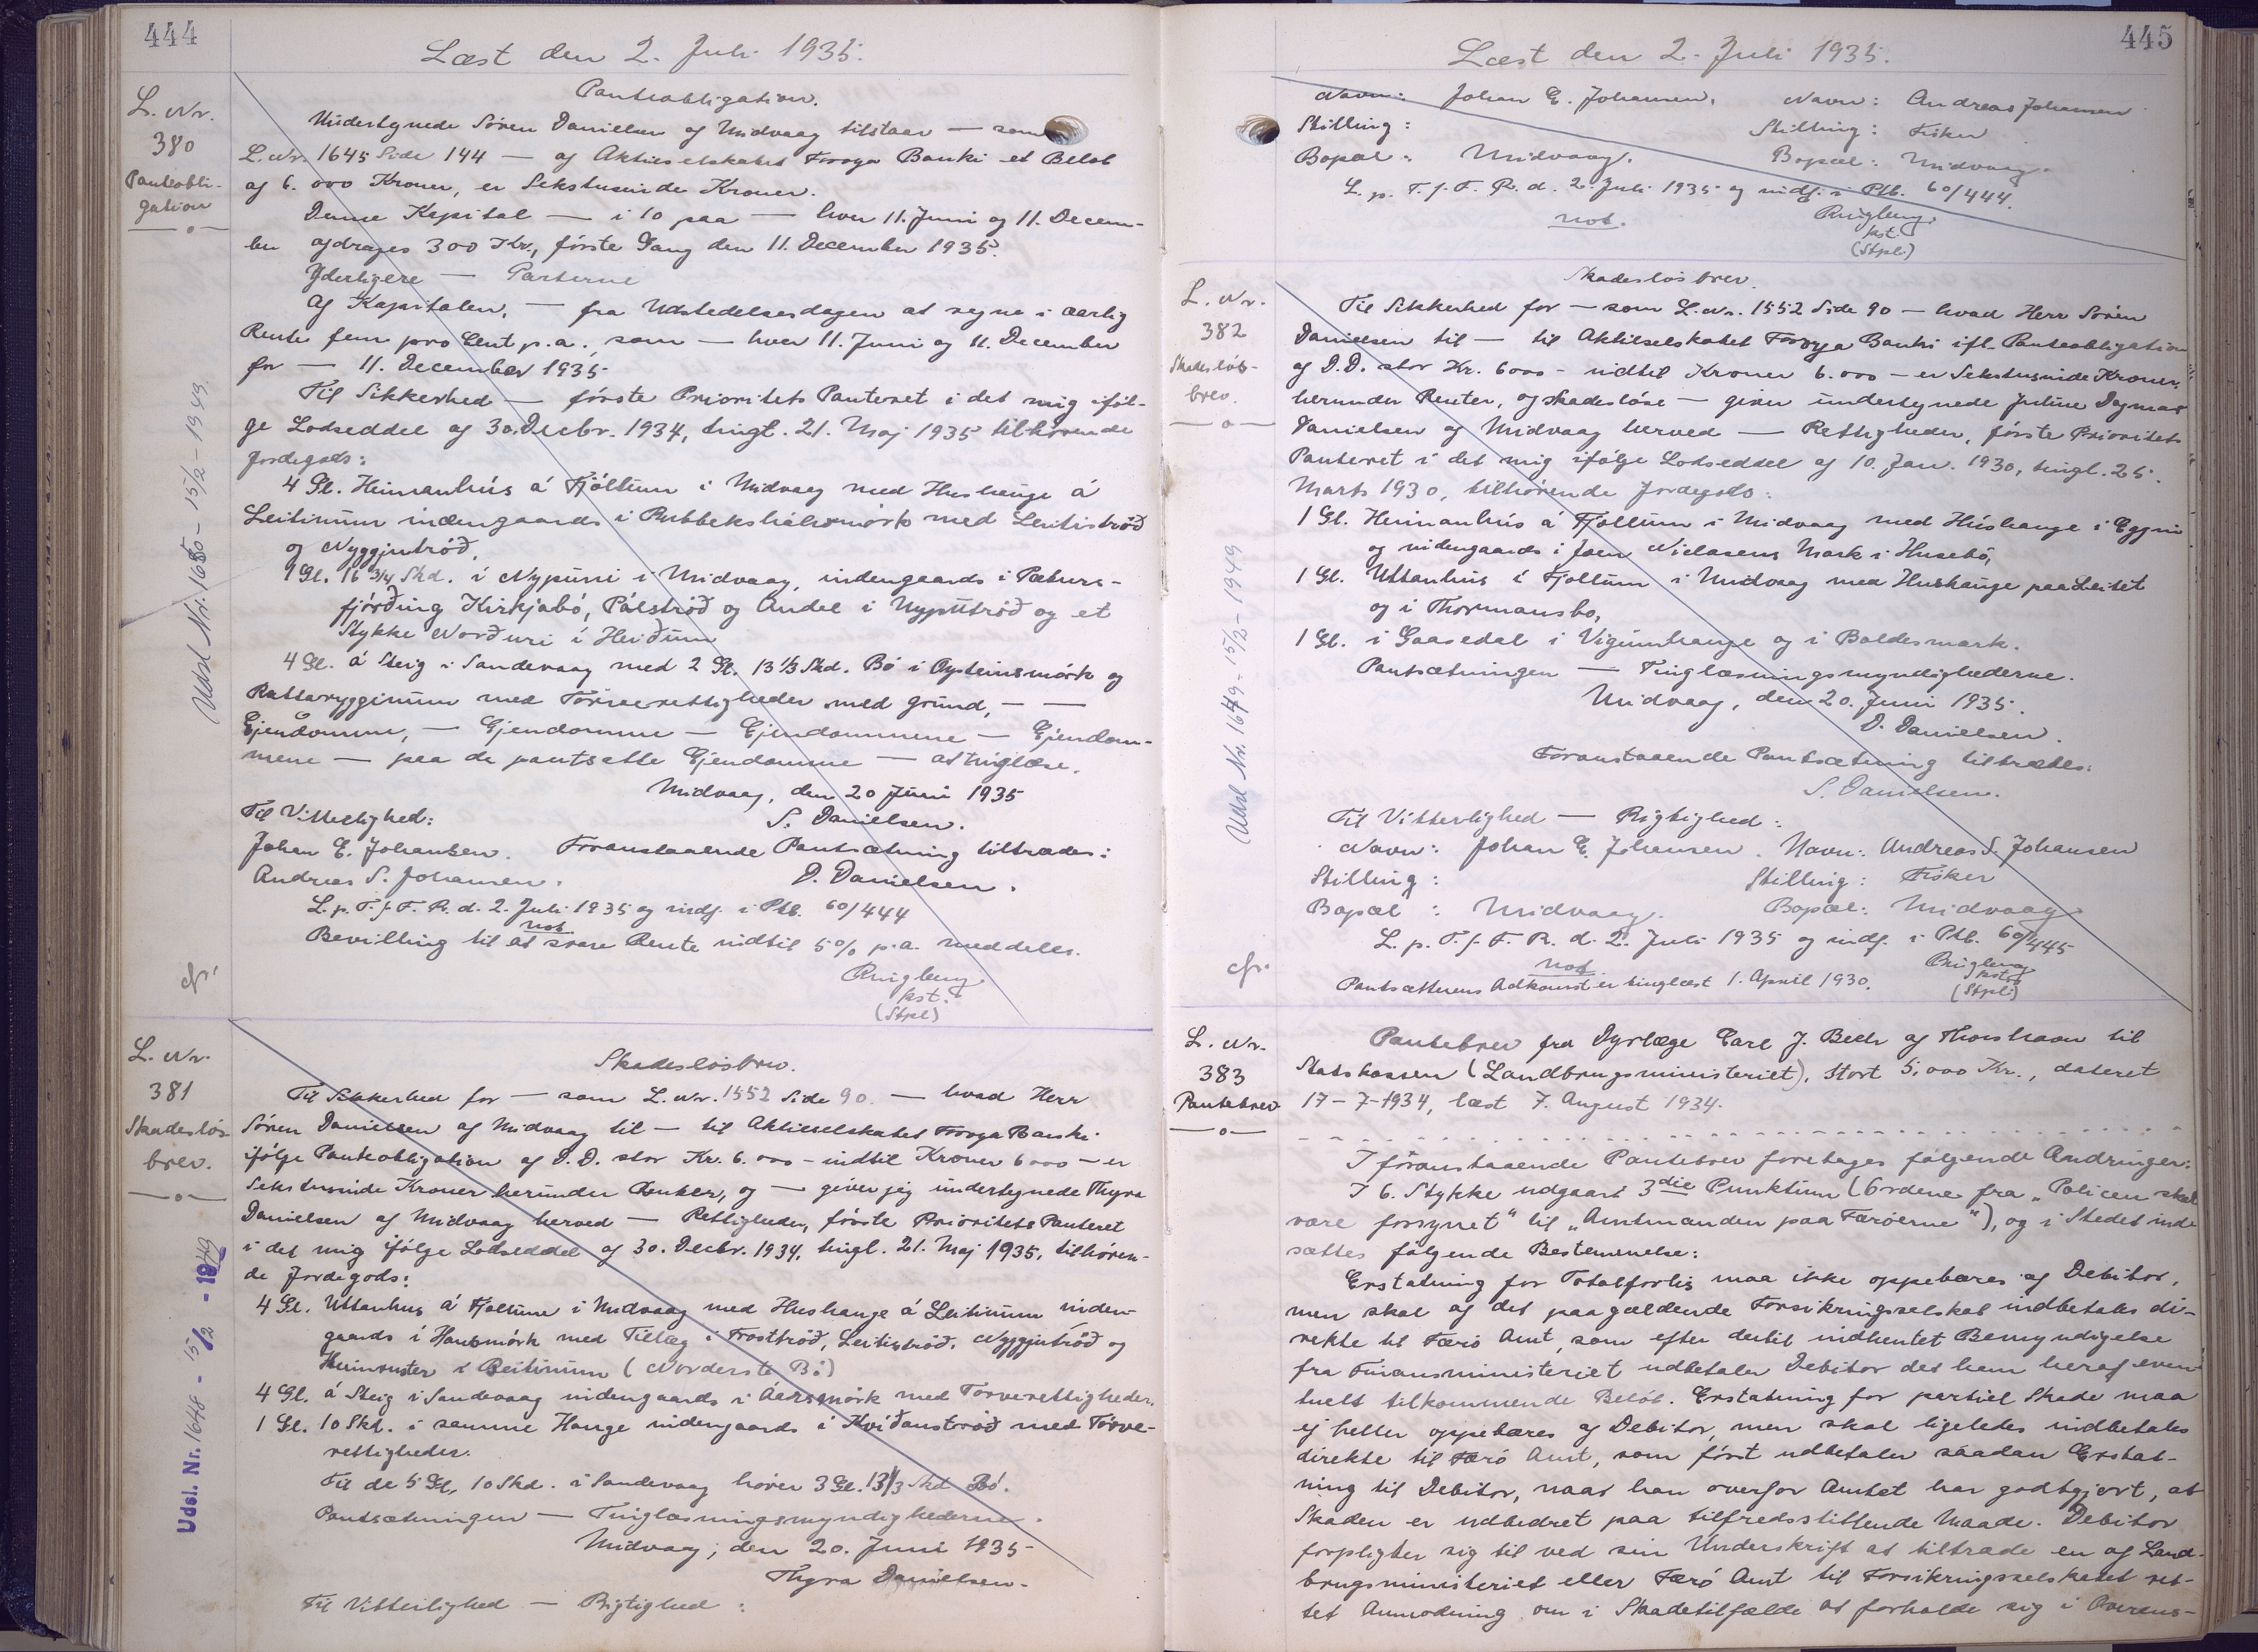 444
Læst den 2. Juli 1935.
L. Nr.
380
Panteobli-
gation
Panteobligation.
Undertegnede Sören Danielsen af Midvaag tilstaar — som
L. Nr. 1645 Side 144 — af Aktieselskabet Føroya Banki et Beløb
af 6.000 Kroner, er Sekstusinde Kroner.
Denne Kapital — i 10 paa — hver 11. Juni og 11. Decem-
ber afdrages 300 Kr., første Gang den 11. December 1935.
Yderligere — Parterne
Af Kapitalen, — fra Udstedelsesdagen at regne i aarlig
Rente fem pro Cent p.a., som — hver 11. Juni og 11. December
for — 11. December 1935
Til Sikkerhed — første Prioritets Panteret i det mig iføl-
ge Lodseddel af 30. Decbr. 1934, tingl. 21. Maj 1935 tilhørende
Jordegods:
4 Gl. Heimanhús á Fjøllum i Midvaag med Hushauge á
Leitinum indengaards i Rubbekshálsmørk med Leitistrøð
og Nyggjutrøð,
9 Gl. 16 3/4 Skd. í Nypuni i Midvaag, indengaards i Pæturs-
fjórðing Kirkjabø, Pálstrøð og Andel i Nyputrøð og et
Stykke Norðuri í Heiðum
4 Gl. á Steig i Sandevaag med 2 Gl. 13 1/3 Skd. Bø i Oysteinsmørk og
Rattarygginum med Tørverettigheder med Grund, — —
Ejendomme, — Ejendomme — Ejendommene — Ejendom-
mene — paa de pantsatte Ejendomme — at tinglæse.
Midvaag, den 20 Juni 1935
Til Vitterlighed: S. Danielsen.
Johan E. Johansen. Foranstaaende Pantsætning tiltrædes:
Andreas S. Johansen. D. Danielsen.
L. p. T. f. F. R. d. 2. Juli 1935 og indf. i Ptb. 60/444
not.
Bevilling til at svare Rente indtil 5% p.a. meddeles.
Ringberg
kst.
(Stpl)
Udsl Nr. 1650 - 15/2 - 1949
cfr.
L. Nr.
381
Skadesløs-
brev.
Skadesløsbrev.
Til Sikkerhed for — som L. Nr. 1552 Side 90. — hvad Herr
Sören Danielsen af Midvaag til — til Aktieselskabet Føroya Banki
ifølge Panteobligation af D.D. stor Kr. 6.000 - indtil Kroner 6000 - er
Sekstusinde Kroner herunder Renter, og — giver jeg undertegnede Thyra
Danielsen af Midvaag herved — Rettigheder, første Prioritets Panteret
i det mig ifølge Lodseddel af 30. Decbr. 1934, tingl. 21. Maj 1935, tilhøren-
de Jordegods:
4 Gl. Uttanhus á Fjøllum i Midvaag med Hushauge á Leitinum inden-
gaards i Hansmørk med Tillæg i Trosttrøð, Leitistrøð, Nyggjutrøð og
Heimruster í Reitinum (Norderste Bø)
4 Gl. á Steig i Sandevaag indengaards i Áarsmørk med Tørverettigheder,
1 Gl. 10 Skd. i samme Hauge indengaards i Kviðanstrøð med Tørve-
rettigheder.
Til de 5 Gl. 10 Skd. i Sandevaag hører 3 Gl. 13 1/3 Skd Bø.
Pantsætningen — Tinglæsningsmyndighederne.
Midvaag, den 20. Juni 1935
Thyra Danielsen.
Til Vitterlighed — Rigtighed:
Udsl. Nr. 1648 - 15/2 - 1949
445
Læst den 2. Juli 1935.
Navn: Johan E. Johansen. Navn: Andreas Johansen
Stilling: Stilling: Fisker
Bopæl: Midvaag. Bopæl: Midvaag.
L. p. T. f. F. R. d. 2. Juli 1935 og indf. i Ptb. 60/444.
not. Ringberg.
kst.
(Stpl.)
L. Nr.
382
Skadesløs-
brev.
Skadesløsbrev.
Til Sikkerhed for — som L. Nr. 1552 Side 90 — hvad Herr Sören
Danielsen til — til Aktieselskabet Føroya Banki ifl. Panteobligation
af D.D. stor Kr. 6000 - indtil Kroner 6.000 - er Sekstusinde Kroner,
herunder Renter, og skadesløse — giver undertegnede Juline Dagmar
Danielsen af Midvaag herved — Rettigheder, første Prioritets
Panteret i det mig ifølge Lodseddel af 10. Jan. 1930, tingl. 25.
Marts 1930, tilhørende Jordegods:
1 Gl. Heimanhús á Fjøllum i Midvaag med Húshauge i Eggini
og indengaards i Joen Nielasens Mark i Husebø,
1 Gl. Uttanhús á Fjøllum i Midvaag med Hushauge paa Leitet
og i Thormansbø,
1 Gl. i Gaasedal i Vigumhauge og i Boldesmark.
Pantsætningen — Tinglæsningsmyndighederne.
Midvaag, den 20. Juni 1935.
D. Danielsen.
Foranstaaende Pantsætning tiltrædes:
S. Danielsen.
Til Vitterlighed — Rigtighed:
Navn: Johan E. Johansen. Navn: Andreas S. Johansen
Stilling: Stilling: Fisker
Bopæl: Midvaag. Bopæl: Midvaag
L. p. T. f. F. R. d. 2. Juli 1935 og indf. i Ptb. 60/445
not Ringberg
kst.
(Stpl.)
Pantsætterens Adkomst er tinglæst 1. April 1930.
Udsl Nr. 1649 - 15/2 - 1949
cfr.
L. Nr.
383
Pantebrev
Pantebrev fra Dyrlæge Carl J. Bech af Thorshavn til
Statskassen (Landbrugsministeriet), stort 5.000 Kr., dateret
17-7-1934, læst 7. August 1934.
I foranstaaende Pantebrev foretages følgende Ændringer:
I 6. Stykke udgaar 3die Punktum (Ordene fra "Policen skal
være forsynet" til "Amtmanden paa Færøerne"), og i Stedet ind-
sættes følgende Bestemmelse:
Erstatning for Totalforlis maa ikke oppebæres af Debitor,
men skal af det paagældende Forsikringsselskab indbetales di-
rekte til Færø Amt, som efter dertil indhentet Bemyndigelse
fra Finansministeriet udbetaler Debitor det ham heraf even-
tuelt tilkommende Beløb. Erstatning for partiel Skade maa
ej heller oppebæres af Debitor, men skal ligeledes indbetales
direkte til Færø Amt, som først udbetaler saadan Erstat-
ning til Debitor, naar han overfor Amtet har godtgjort, at
Skaden er udbedret paa tilfredsstillende Maade. Debitor
forpligter sig til ved sin Underskrift at tiltræde en af Land-
brugsministeriet eller Færø Amt til Forsikringsselskabet ret-
tet Anmodning om i Skadetilfælde at forholde sig i Overens-